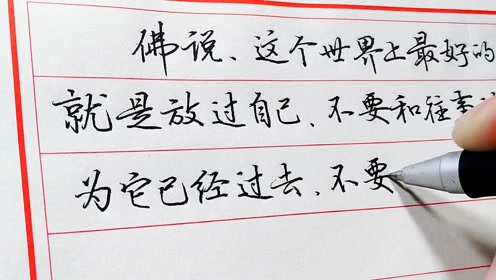 佛说、这个世界上最好的
就是放过自己、不要和往事
为它已经过去、不要